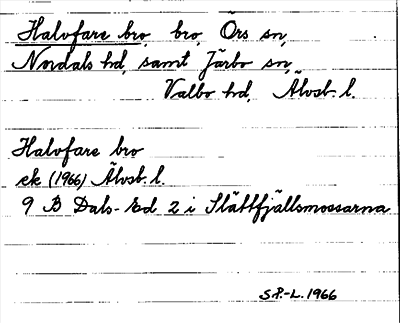 Halvfare bro, bro, Örs sn,
Nordals hd, samt Järbo sn,
Valbo hd, Älvsb. l.
Halvfare bro
ek (1966) Älvsb. l.
9 B Dals-Ed 2 i Slättfjällsmossarna
S.P.-L. 1966